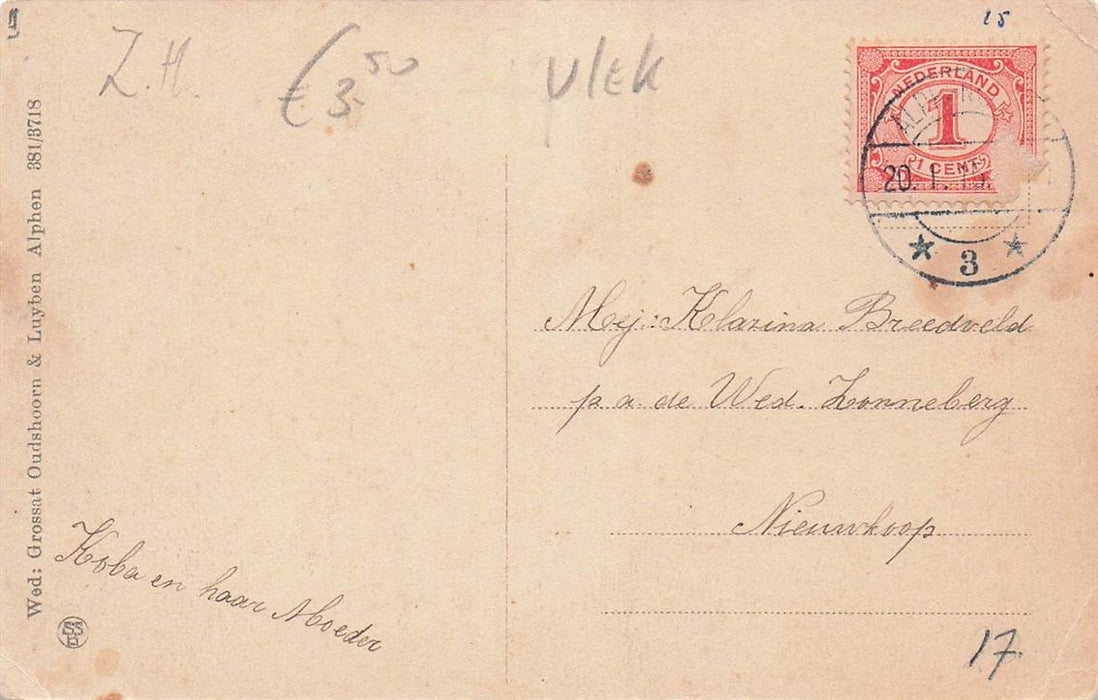 15
Z.H.
€ 3.50
VlEK
NEDERLAND
1
1 CENT
20. 1. 15.
3
Wed: Grossat Oudshoorn & Luyben Alphen 381/3718
Mej: Klazina Breedveld
p a. de Wed. Zonneberg
Nieuwkoop
Koba en haar Moeder
17.